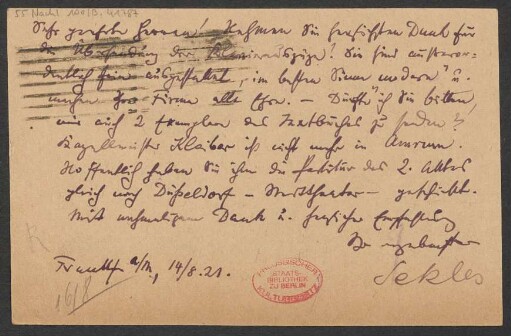 55 Nachl 100/B, 41287
Sehr geehrte Herren! Nehmen Sie herzlichsten Dank für
die Übersendung der Klavierauszüge! Sie sind ausseror-
dentlich fein ausgestattet, im besten Sinne modern u.
machen Ihrer Firma alle Ehre. – Dürfte ich Sie bitten,
mir auch 2 Exemplare des Textbuches zu senden?
Kapellmeister Klaiber ist nicht mehr in Amrum.
Hoffentlich haben Sie ihm die Partitur des 2. Aktes
gleich nach Düsseldorf – Stadttheater – geschickt.
Mit nochmaligem Dank u. herzlicher Empfehlung
Ihr ergebenster
Sekles
Frankf a/M, 14/8.21.
16/8
STAATS-
BIBLIOTHEK
ZU BERLIN
KULTURBESITZ